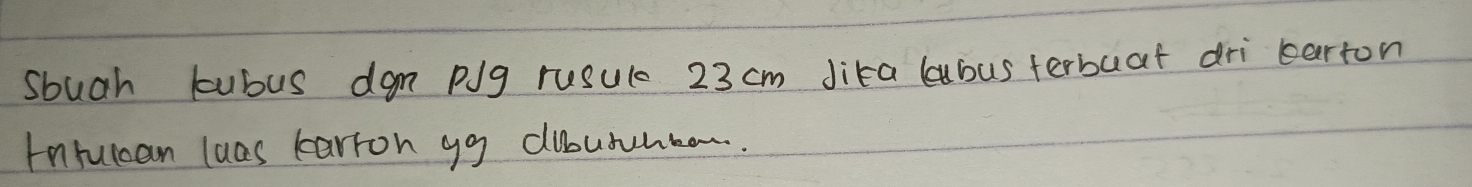 Sbuah kubus dgn pjg rusuk 23 cm Jika kubus terbuat dri karton
tntukan luas karton yg dibutuhkan.